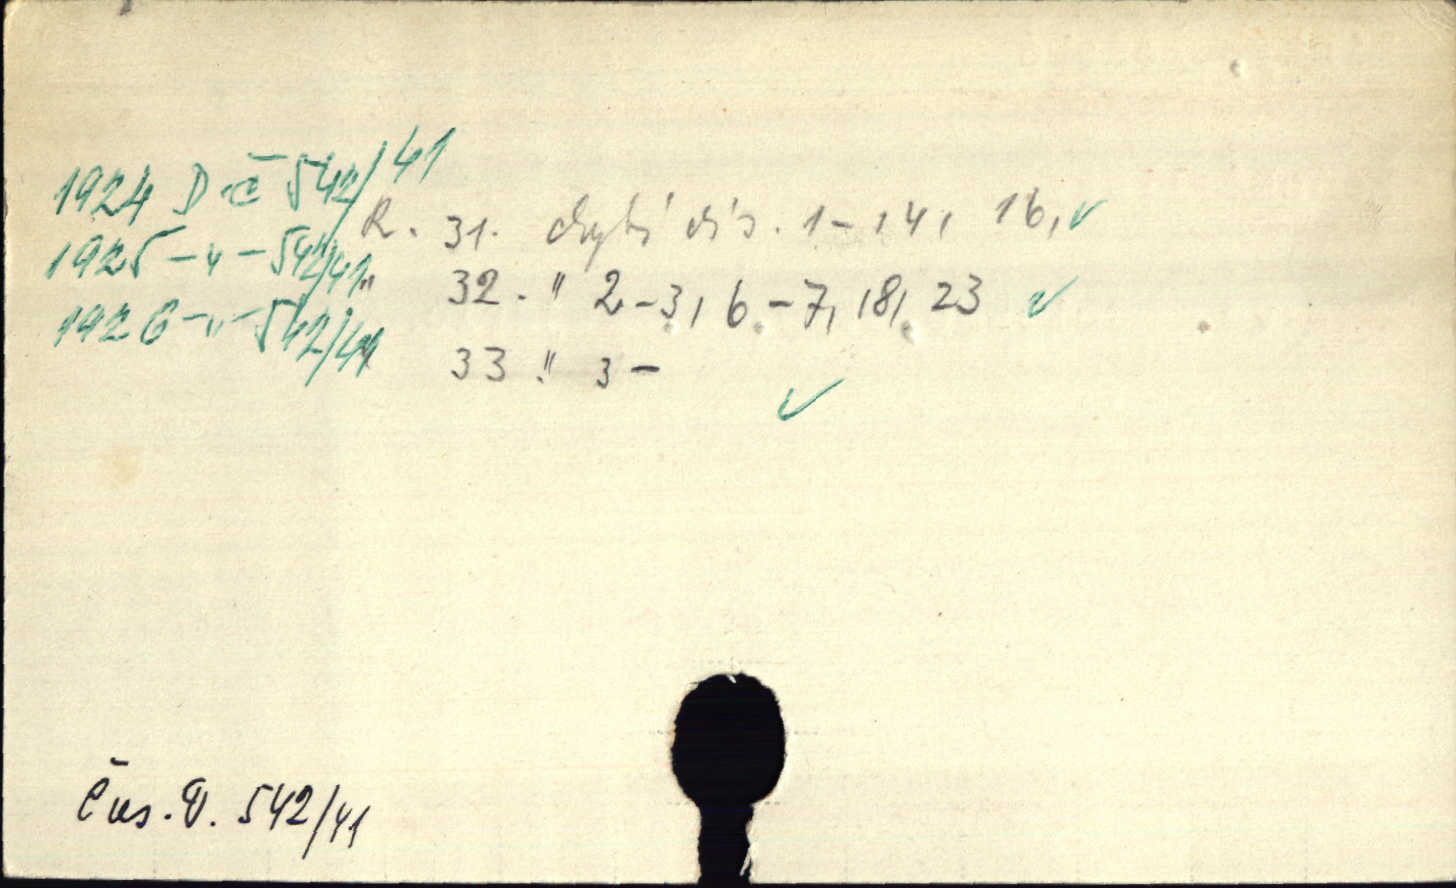 1924 D č 542/41
R. 31. chybí čís. 1-14, 16, ✓
1925 - " - 542/41
" 32. " 2-3, 6.-7, 18, 23 ✓
1926 - " - 542/41
" 33 " 3 - ✓
Čas. D. 542/41